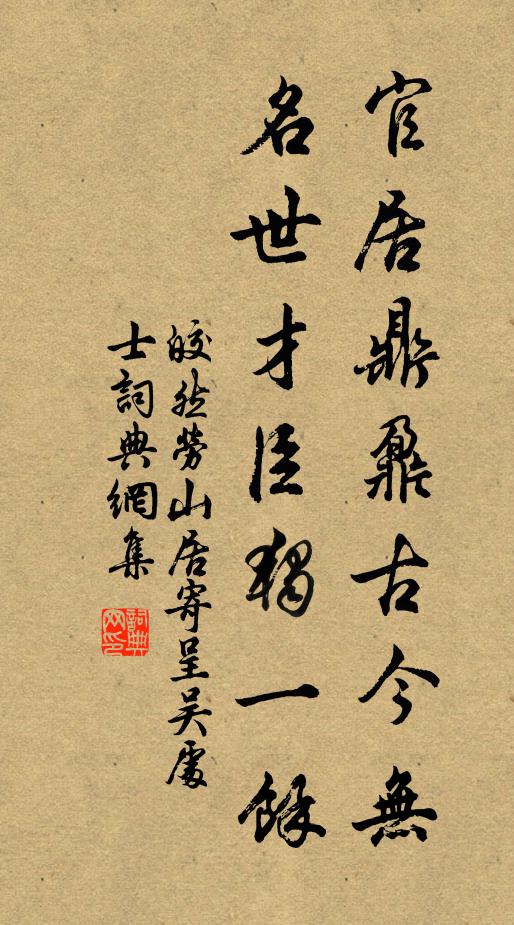 官居鼎鼐古今無
名世才臣獨一餘
皎然勞山居寄呈吳處
士詞典網集
詞典网印